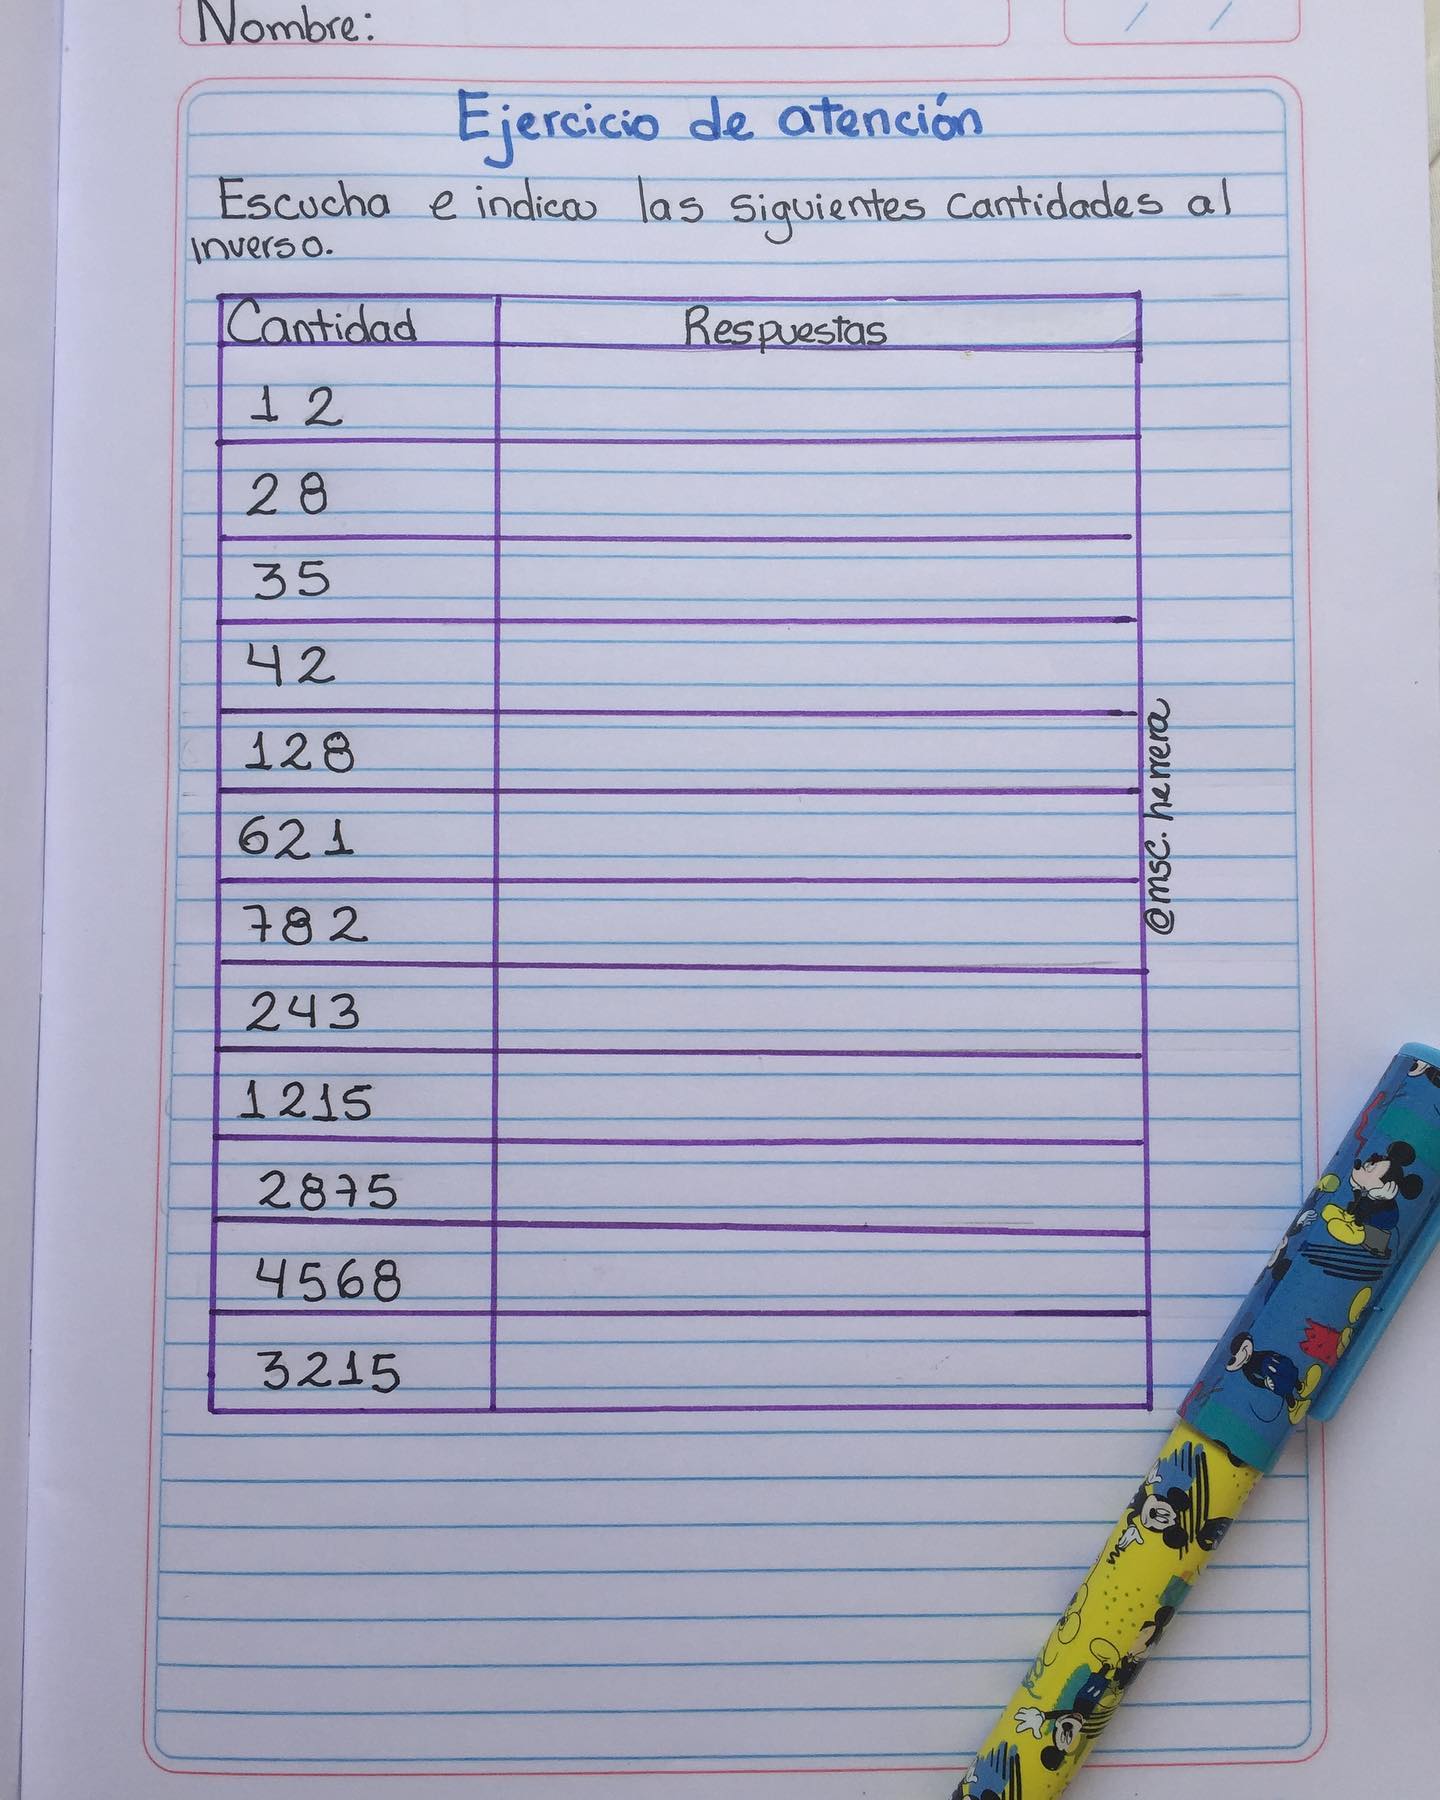 Nombre:
/ /
Ejercicio de atención
Escucha e indica las siguientes cantidades al
inverso.
Cantidad Respuestas
12
28
35
42
128
621
782
243
1215
2875
4568
3215
@msc.herrera